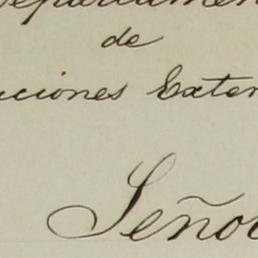 Departamen
de
aciones Exter
Seño